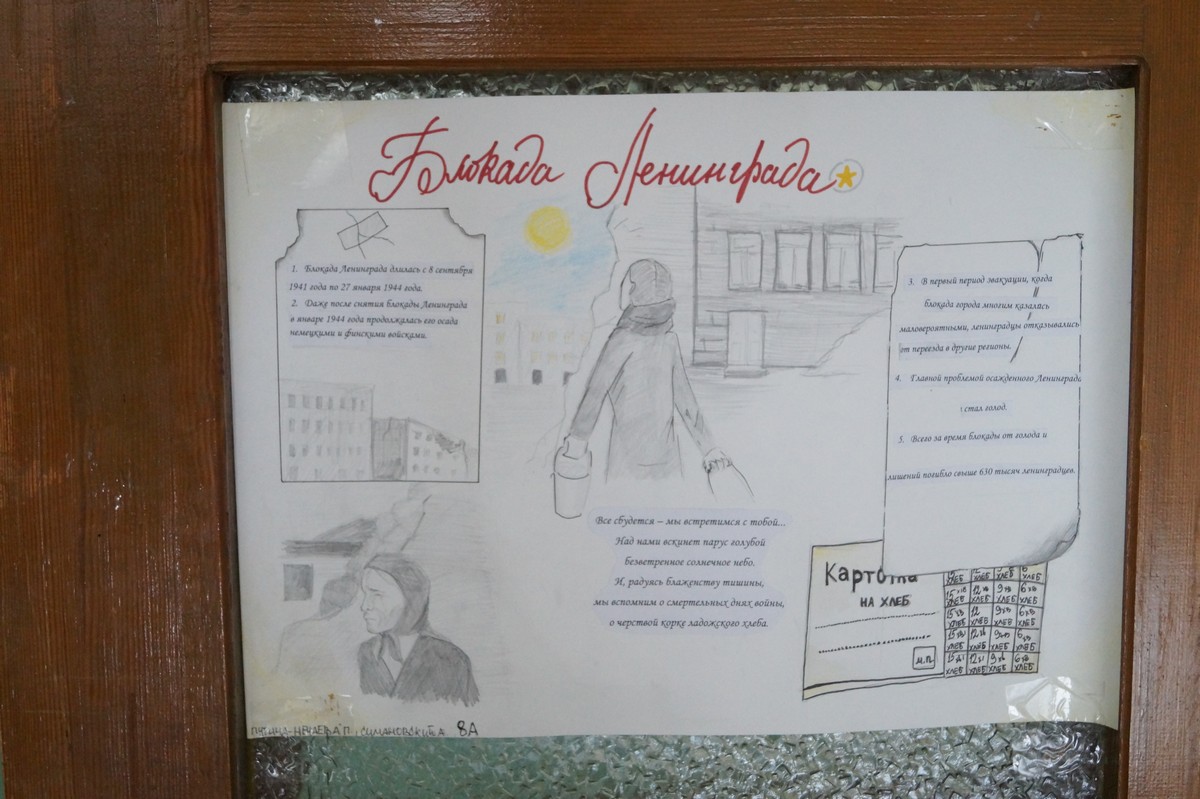 Блокада Ленинграда
1. Блокада Ленинграда длилась с 8 сентября
1941 года по 27 января 1944 года.
2. Даже после снятия блокады Ленинграда
в январе 1944 года продолжалась его осада
немецкими и финскими войсками.
3. В первый период эвакуации, когда
блокада города многим казалась
маловероятными, ленинградцы отказывались
от переезда в другие регионы.
4. Главной проблемой осажденного Ленинграда
стал голод.
5. Всего за время блокады от голода и
лишений погибло свыше 630 тысяч ленинградцев.
Все сбудется – мы встретимся с тобой...
Над нами вскинет парус голубой
безветренное солнечное небо.
И, радуясь блаженству тишины,
мы вспомним о смертельных днях войны,
о черствой корке ладожского хлеба.
Карточка
на хлеб
м.п.
ХЛЕБ ХЛЕБ ХЛЕБ ХЛЕБ
ХЛЕБ ХЛЕБ ХЛЕБ ХЛЕБ
ХЛЕБ ХЛЕБ ХЛЕБ ХЛЕБ
ХЛЕБ ХЛЕБ ХЛЕБ ХЛЕБ
ХЛЕБ ХЛЕБ ХЛЕБ ХЛЕБ
8А